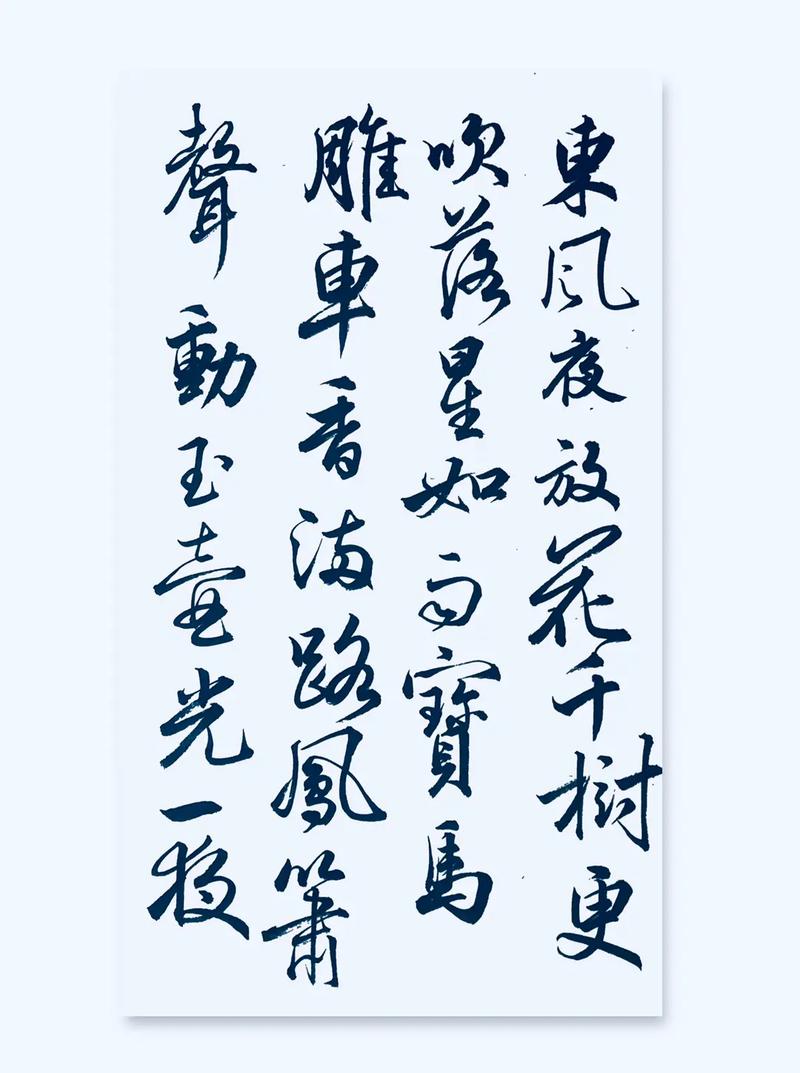 東風夜放花千樹更
吹落星如雨寶馬
雕車香滿路鳳簫
聲動玉壺光一夜